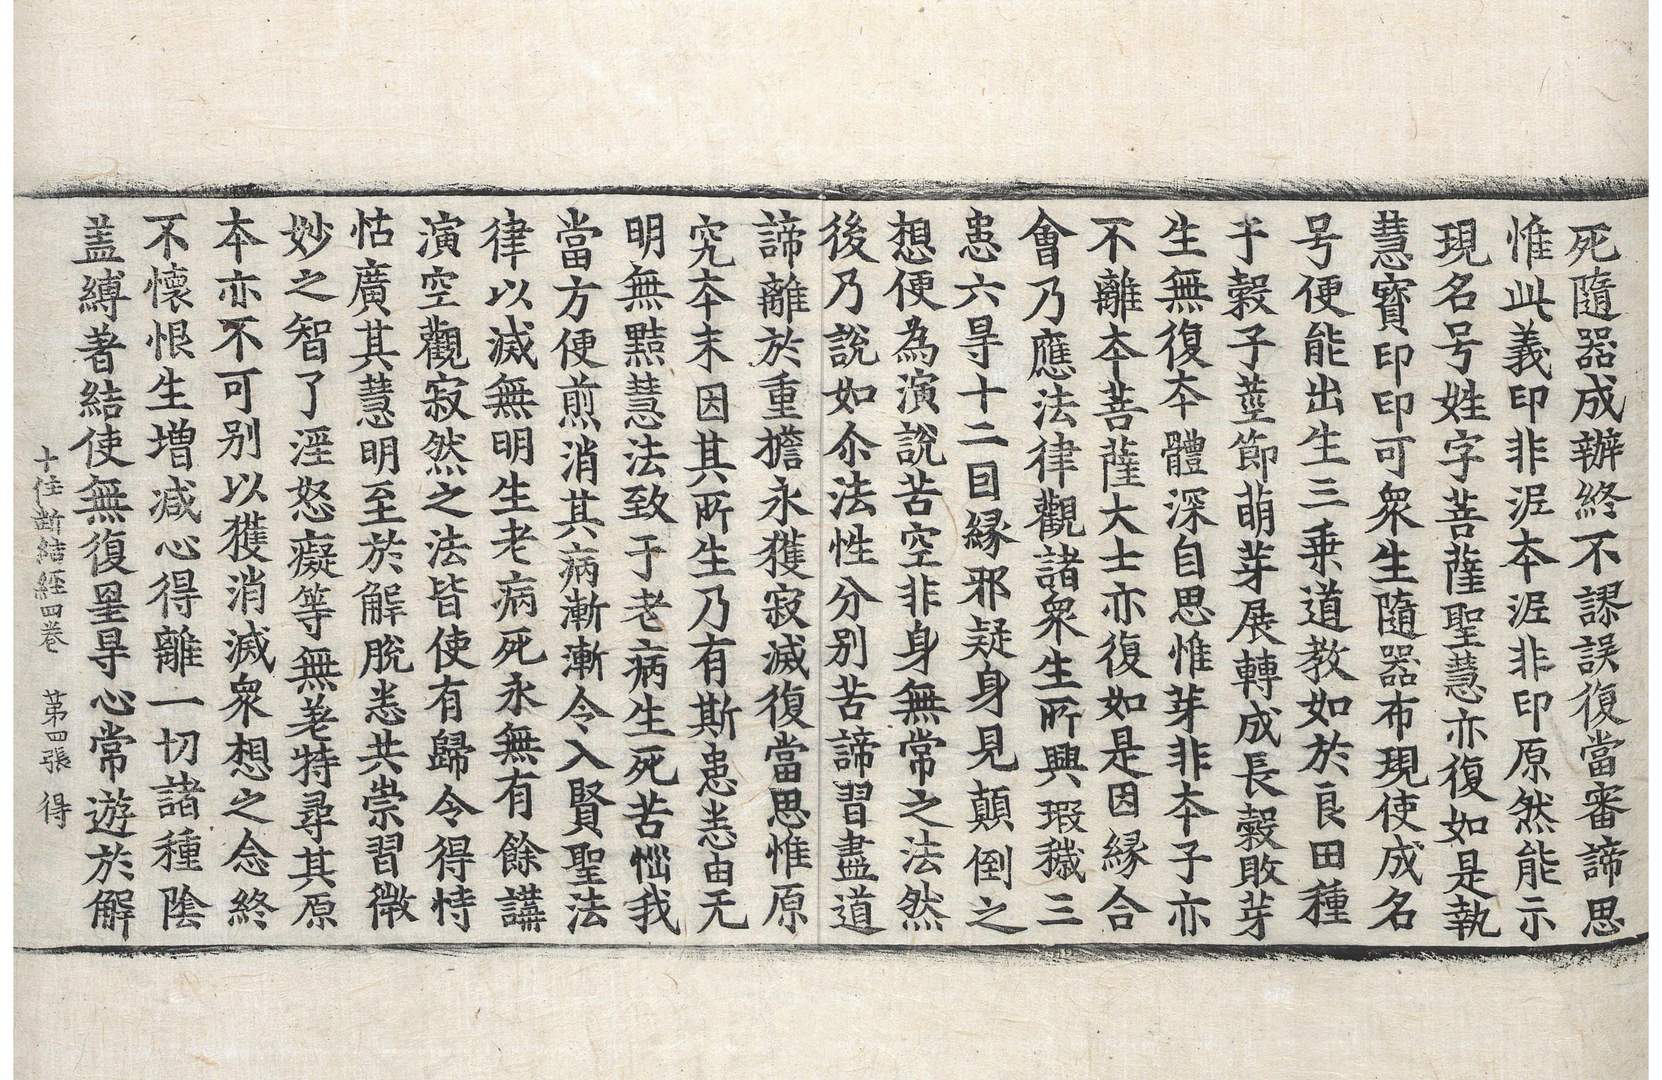 死隨器成辦終不謬誤復當審諦思
惟此義印非泥夲泥非印原然能示
現名号姓字菩薩聖慧亦復如是執
慧寳印印可衆生隨器布現使成名
号便能出生三乗道教如於良田種
于糓子莖節萌芽展轉成長糓敗芽
生無復夲體深自思惟芽非夲子亦
不離夲菩薩大士亦復如是因緣合
會乃應法律觀諸衆生所興瑕穢三
恚六㝵十二因縁邪疑身見顛倒之
想便為演說苦空非身無常之法然
後乃說如尒法性分别苦諦習盡道
諦離於重擔永獲寂滅復當思惟原
究夲末因其所生乃有斯恚恚由无
明無黠慧法致于老病生死苦惱我
當方便煎消其病漸漸令入賢聖法
律以滅無明生老病死永無有餘講
演空觀寂然之法皆使有歸令得恃
怙廣其慧明至於解脫恚共崇習微
妙之智了淫怒癡等無差特尋其原
夲亦不可别以獲消滅衆想之念終
不懷恨生增减心得離一切諸種陰
盖縛著結使無復罣㝵心常遊於解
十住断結經四卷 第四張 得